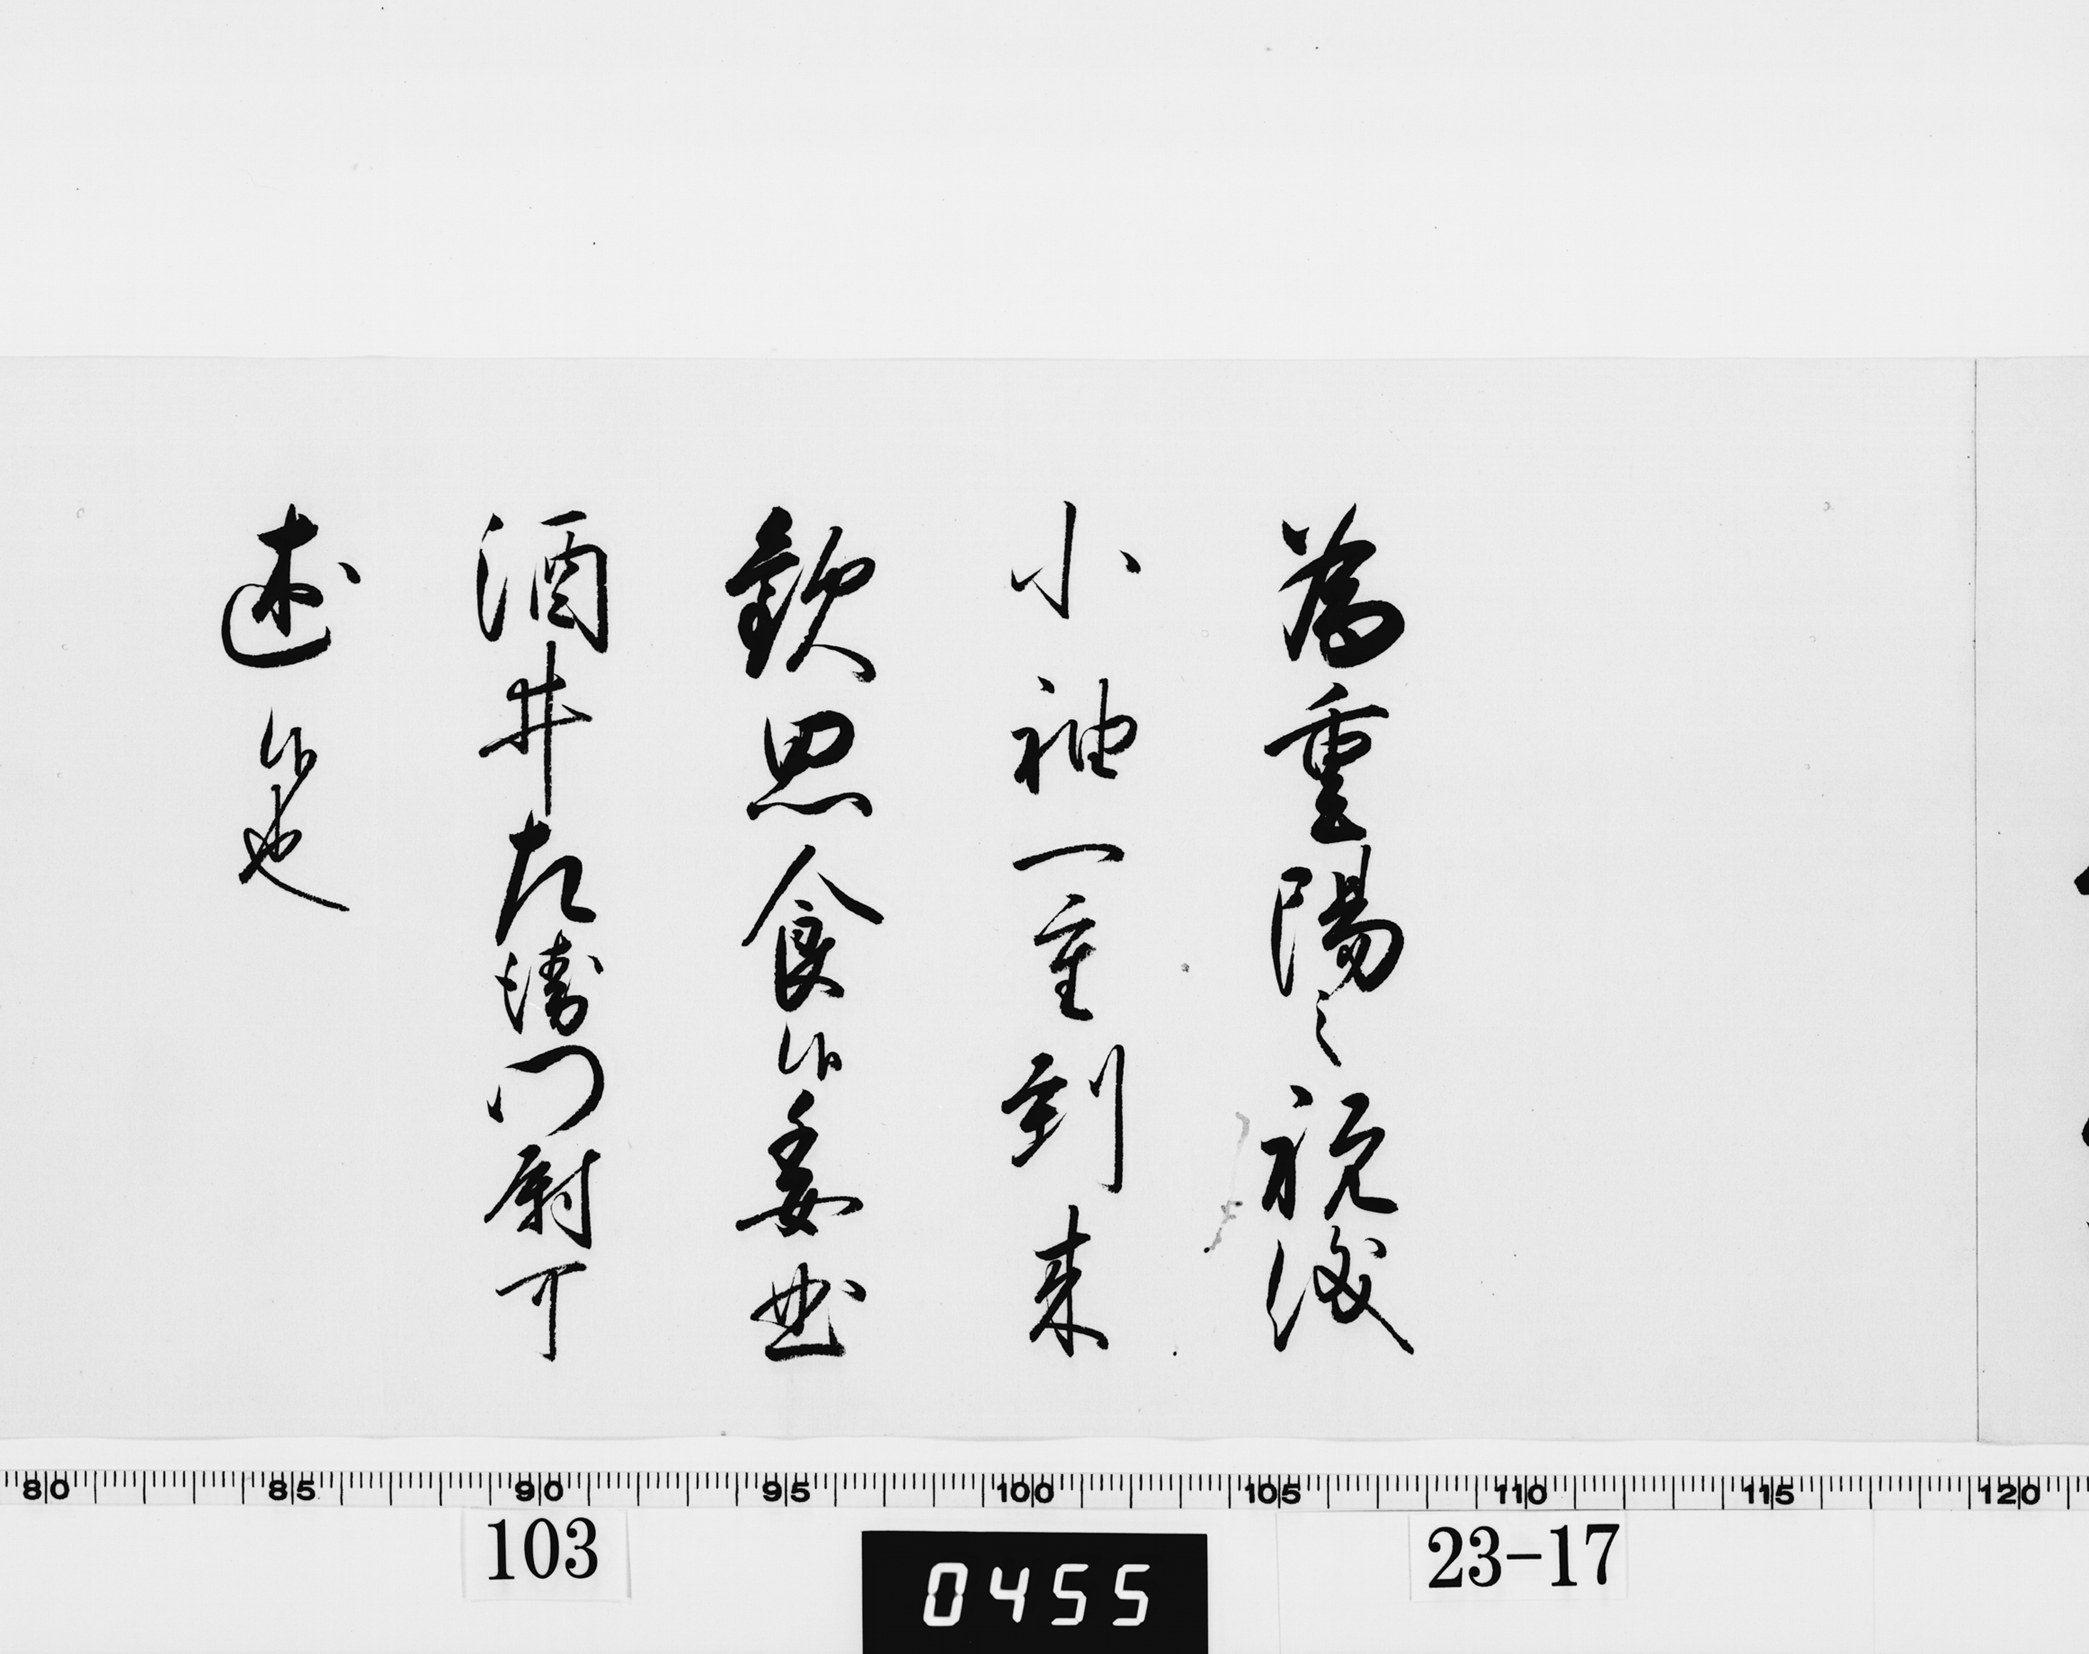 為重陽之祝儀
小袖一重到来
歓思食候委曲
酒井左衛門尉可
述候也
80 85 90 95 100 105 110 115 120
103
0455
23-17